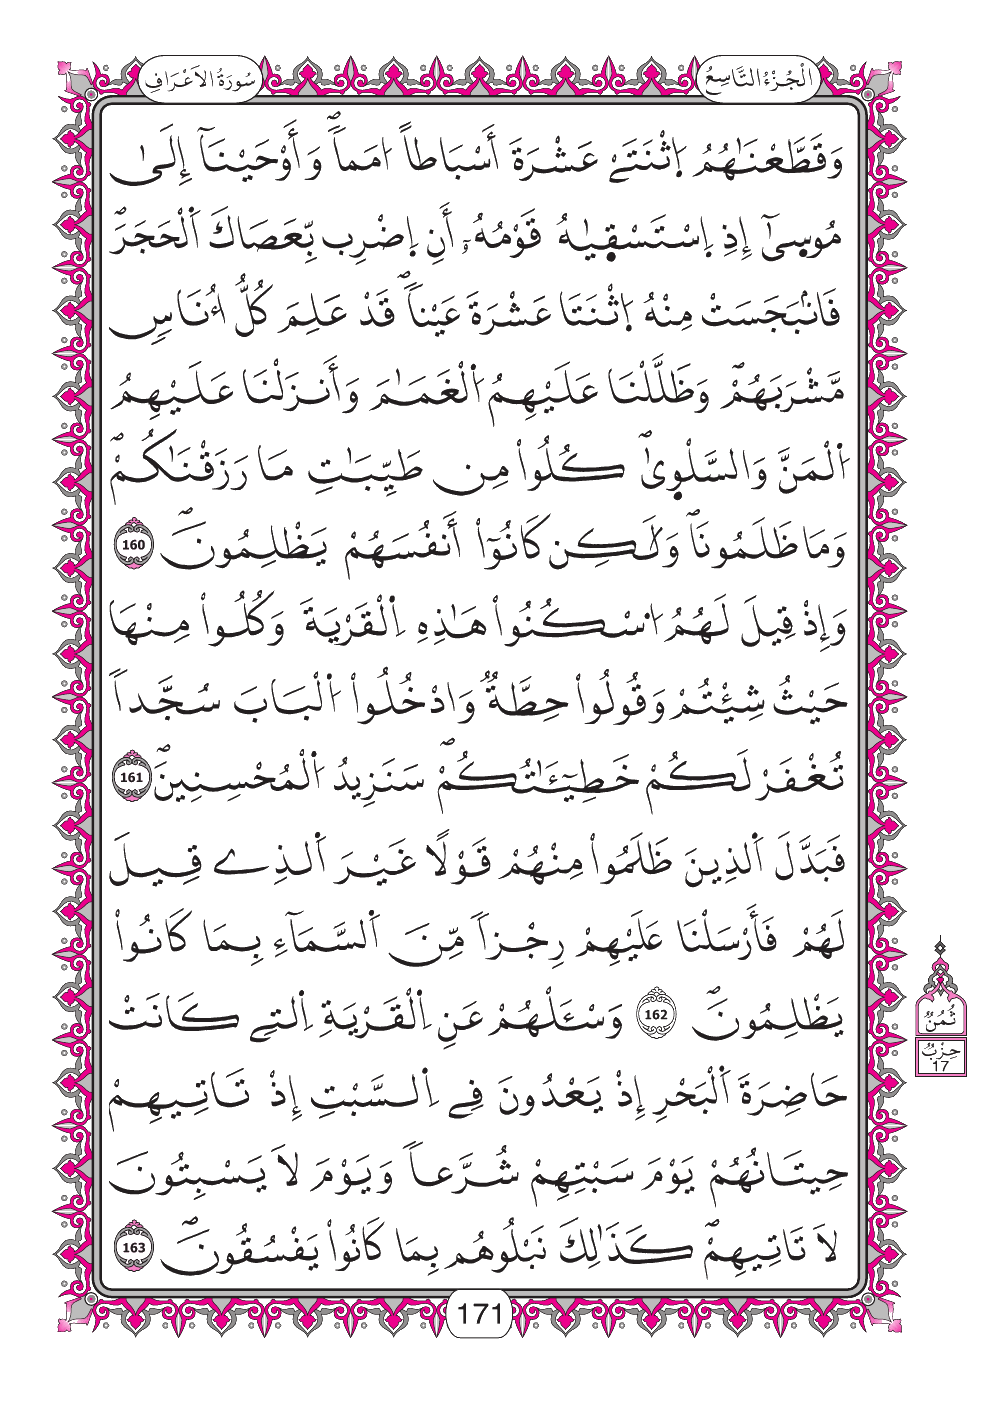 الْجُزْءُ التَّاسِعُ
سُورَةُ الاَعْرَافِ
وَقَطَّعْنَٰهُمُ اِ۪ثْنَتَےْ عَشْرَةَ أَسْبَاطاً ا۟مَماٗۖ وَأَوْحَيْنَآ إِلَىٰ
مُوس۪ىٰٓ إِذِ اِ۪سْتَسْق۪يٰهُ قَوْمُهُۥٓ أَنِ اِ۪ضْرِب بِّعَصَاكَ اَ۬لْحَجَرَۖ
فَانۢبَجَسَتْ مِنْهُ اُ۪ثْنَتَا عَشْرَةَ عَيْناٗۖ قَدْ عَلِمَ كُلُّ أُنَاسٖ
مَّشْرَبَهُمْۖ وَظَلَّلْنَا عَلَيْهِمُ اُ۬لْغَمَٰمَ وَأَنزَلْنَا عَلَيْهِمُ
اُ۬لْمَنَّ وَالسَّلْو۪ىٰۖ كُلُواْ مِن طَيِّبَٰتِ مَا رَزَقْنَٰكُمْۖ
وَمَا ظَلَمُونَاۖ وَلَٰكِن كَانُوٓاْ أَنفُسَهُمْ يَظْلِمُونَۖ 160
وَإِذْ قِيلَ لَهُمُ اُ۟سْكُنُواْ هَٰذِهِ اِ۬لْقَرْيَةَ وَكُلُواْ مِنْهَا
حَيْثُ شِئْتُمْ وَقُولُواْ حِطَّةٞ وَادْخُلُواْ اُ۬لْبَابَ سُجَّداٗ
تُغْفَرْ لَكُمْ خَطِيٓـَٰٔتُكُمْۖ سَنَزِيدُ اُ۬لْمُحْسِنِينَۖ 161
فَبَدَّلَ اَ۬لذِينَ ظَلَمُواْ مِنْهُمْ قَوْلًا غَيْرَ اَ۬لذِے قِيلَ
لَهُمْ فَأَرْسَلْنَا عَلَيْهِمْ رِجْزاٗ مِّنَ اَ۬لسَّمَآءِ بِمَا كَانُواْ
يَظْلِمُونَۖ 162 وَسْـَٔلْهُمْ عَنِ اِ۬لْقَرْيَةِ اِ۬لتِے كَانَتْ
حَاضِرَةَ اَ۬لْبَحْرِ إِذْ يَعْدُونَ فِے اِ۬لسَّبْتِ إِذْ تَاتِيهِمْ
حِيتَانُهُمْ يَوْمَ سَبْتِهِمْ شُرَّعاٗ وَيَوْمَ لَا يَسْبِتُونَ
لَا تَاتِيهِمْۖ كَذَٰلِكَ نَبْلُوهُم بِمَا كَانُواْ يَفْسُقُونَۖ 163
ثُمُنُ
حِزْبُ
17
171